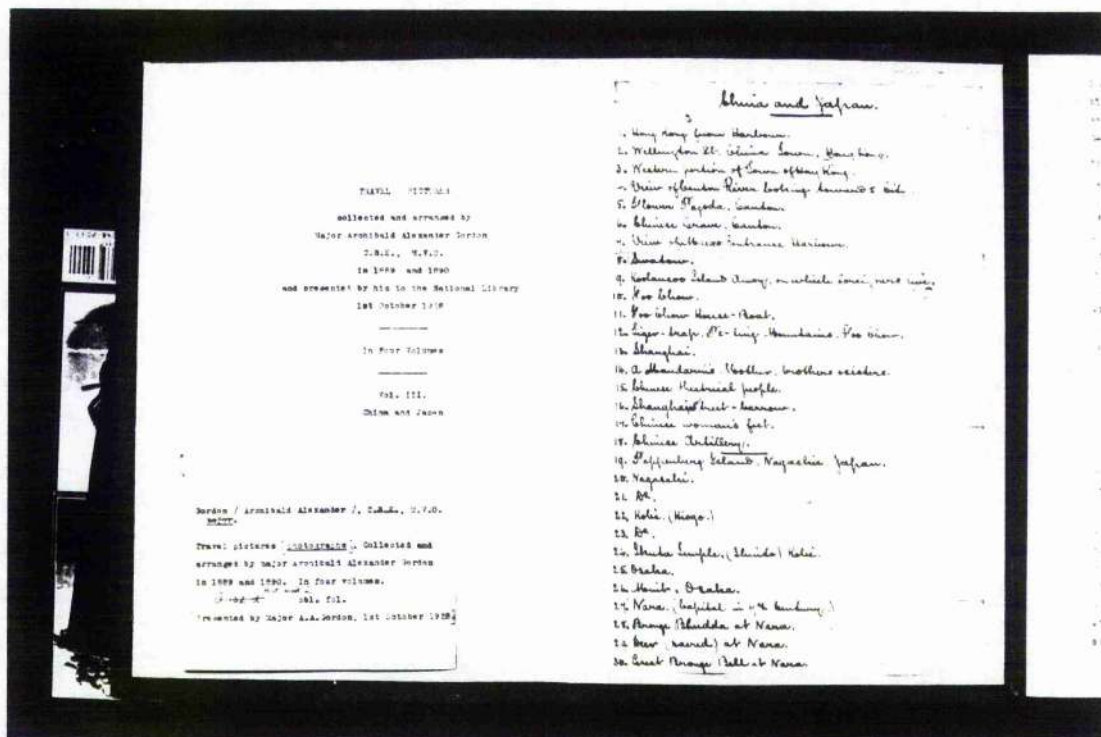 TRAVEL PICTURES
collected and arranged by
Major Archibald Alexander Gordon
C.B.E., M.V.O.
in 1889 and 1890
and presented by him to the National Library
1st October 1928
In Four Volumes
Vol. III.
China and Japan
Gordon / Archibald Alexander /, C.B.E., M.V.O.
major.
Travel pictures [photographs]. Collected and
arranged by major Archibald Alexander Gordon
in 1889 and 1890. In four volumes.
obl. fol.
Presented by Major A.A.Gordon, 1st October 1928.
China and Japan.
1. Hong Kong from Harbour.
2. Wellington St. China Town, Hong Kong.
3. Western portion of Town of Hong Kong.
View of Canton River looking towards
5. Flower Pagoda. Canton.
6. Chinese Grave, Canton.
7. View Entrance Harbour.
8. Swatow.
9. Island Amoy, on which foreigners live.
10. Foo Chow.
11. Foo Chow House-Boat.
12. Tiger-trap, Mountains, Foo Chow.
13. Shanghai.
14. A Mandarin's Mother, brothers & sisters.
15. Chinese theatrical people.
16. Shanghai Street-barrow.
17. Chinese woman's feet.
18. Chinese Artillery.
19. Pappenberg Island, Japan.
20. Nagasaki.
21. Do.
22. Kobé. (Hiogo.)
23. Do.
24. Temple, (Shinto) Kobé.
25. Osaka.
26. Osaka.
27. Nara. (Capital in Century.)
28. Bronze Bhudda at Nara.
29. Deer (sacred) at Nara.
30. Great Bronze Bell at Nara.